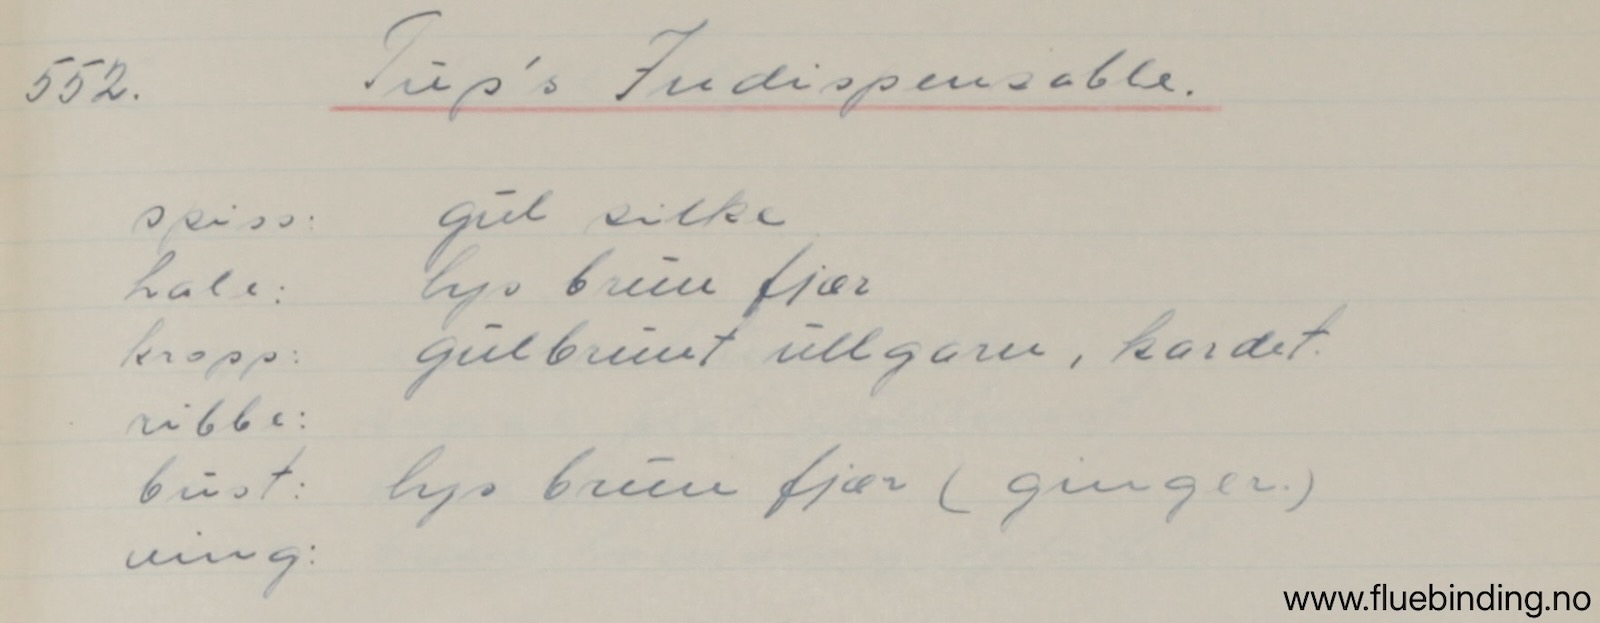 552. Tup's Indispensable.
spiss: gul silke
hale: lys brun fjær
kropp: gulbrunt ullgarn, kardet.
ribbe:
bust: lys brun fjær (ginger.)
ving:
www.fluebinding.no